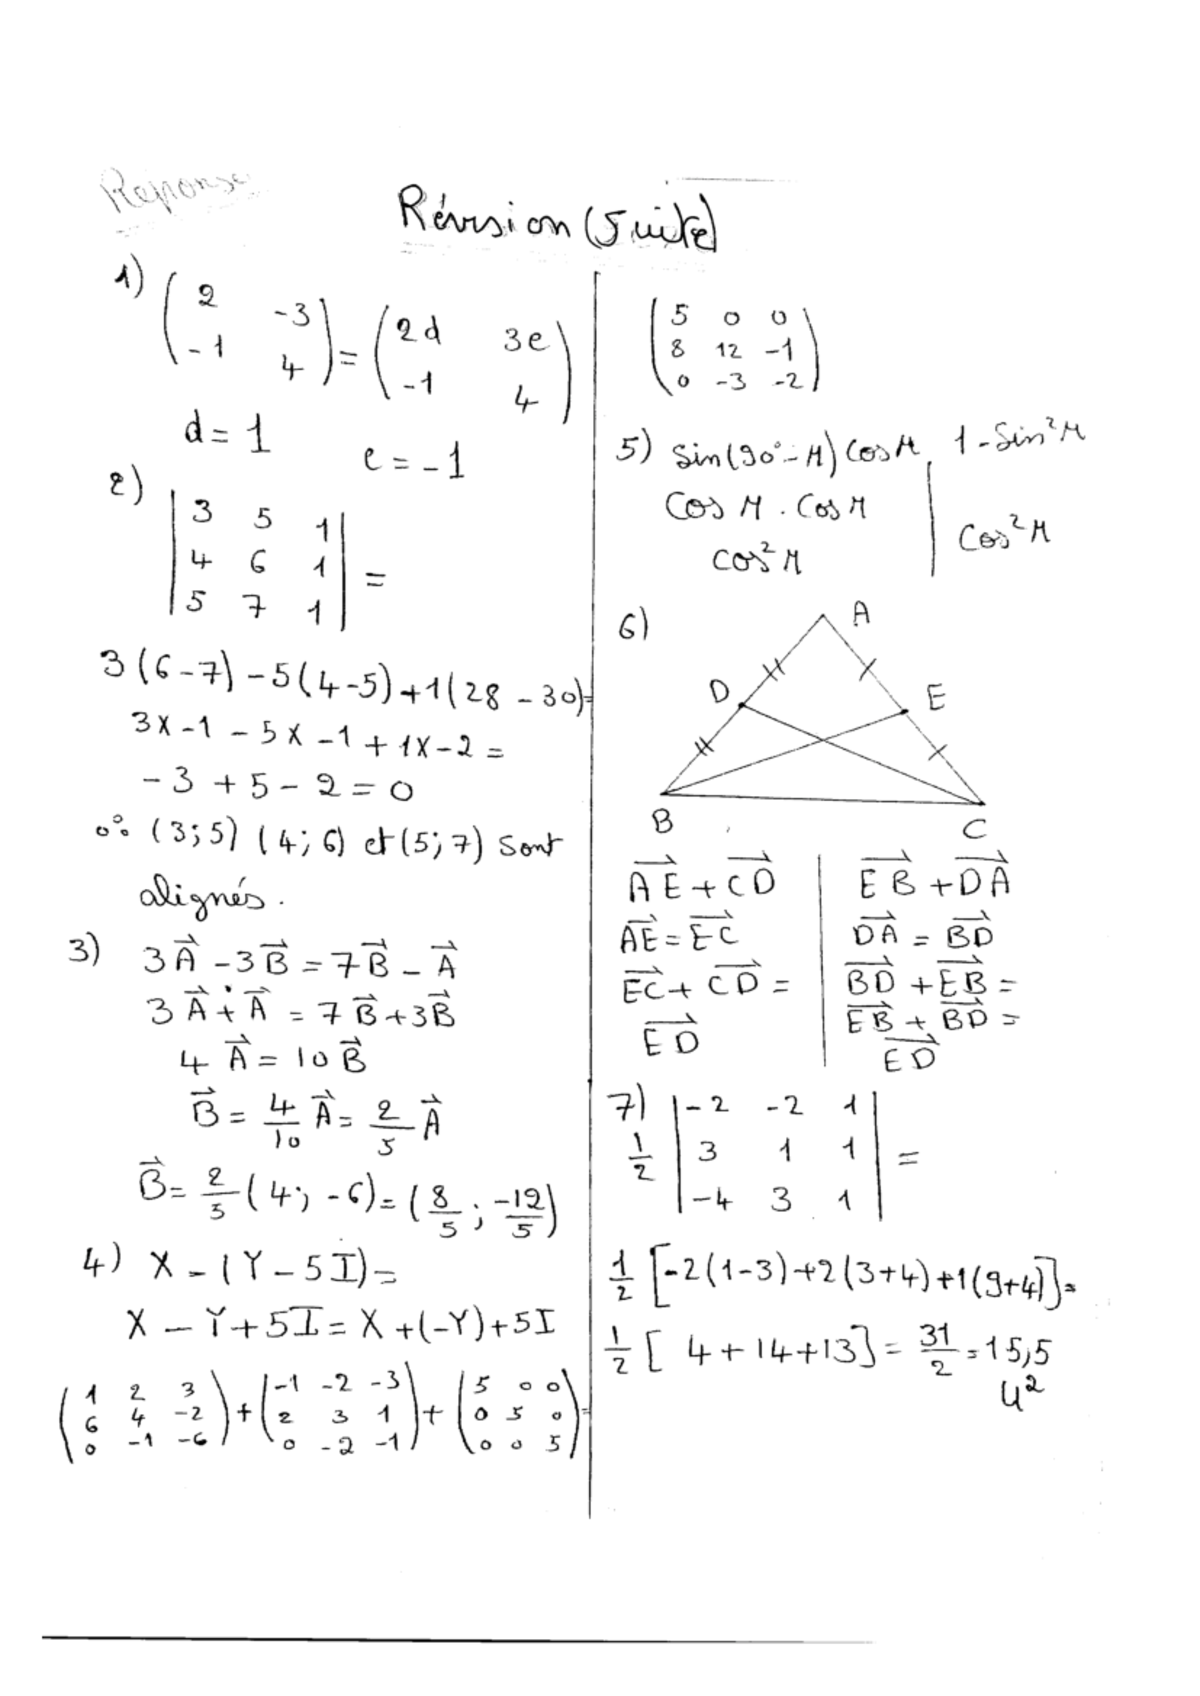 Reponse
Révision (Suite)
1) ( 2 -3 ; -1 4 ) = ( 2d 3e ; -1 4 )
d = 1 e = -1
2) | 3 5 1 |
| 4 6 1 | =
| 5 7 1 |
3 (6 - 7) - 5 (4 - 5) + 1 (28 - 30) =
3x -1 - 5x -1 + 1x -2 =
-3 + 5 - 2 = 0
(3;5) (4;6) et (5;7) sont
alignés.
3) 3A⃗ - 3B⃗ = 7B⃗ - A⃗
3A⃗ + A⃗ = 7B⃗ + 3B⃗
4A⃗ = 10B⃗
B⃗ = 4/10 A⃗ = 2/5 A⃗
B⃗ = 2/5 (4; -6) = (8/5 ; -12/5)
4) X - (Y - 5I) =
X - Y + 5I = X + (-Y) + 5I
( 1 2 3 ; 6 4 -2 ; 0 -1 -6 ) + ( -1 -2 -3 ; 2 3 1 ; 0 -2 -1 ) + ( 5 0 0 ; 0 5 0 ; 0 0 5 ) =
( 5 0 0 )
( 8 12 -1 )
( 0 -3 -2 )
5) Sin(90° - M) Cos M 1 - Sin²M
Cos M . Cos M | Cos²M
Cos²M
6) A
D E
B C
AE⃗ + CD⃗ | EB⃗ + DA⃗
AE⃗ = EC⃗ | DA⃗ = BD⃗
EC⃗ + CD⃗ = | BD⃗ + EB⃗ =
ED⃗ | EB⃗ + BD⃗ =
ED⃗
7) | -2 -2 1 |
1/2 | 3 1 1 | =
| -4 3 1 |
1/2 [-2(1-3) + 2(3+4) + 1(9+4)] =
1/2 [ 4 + 14 + 13 ] = 31/2 = 15,5
u²